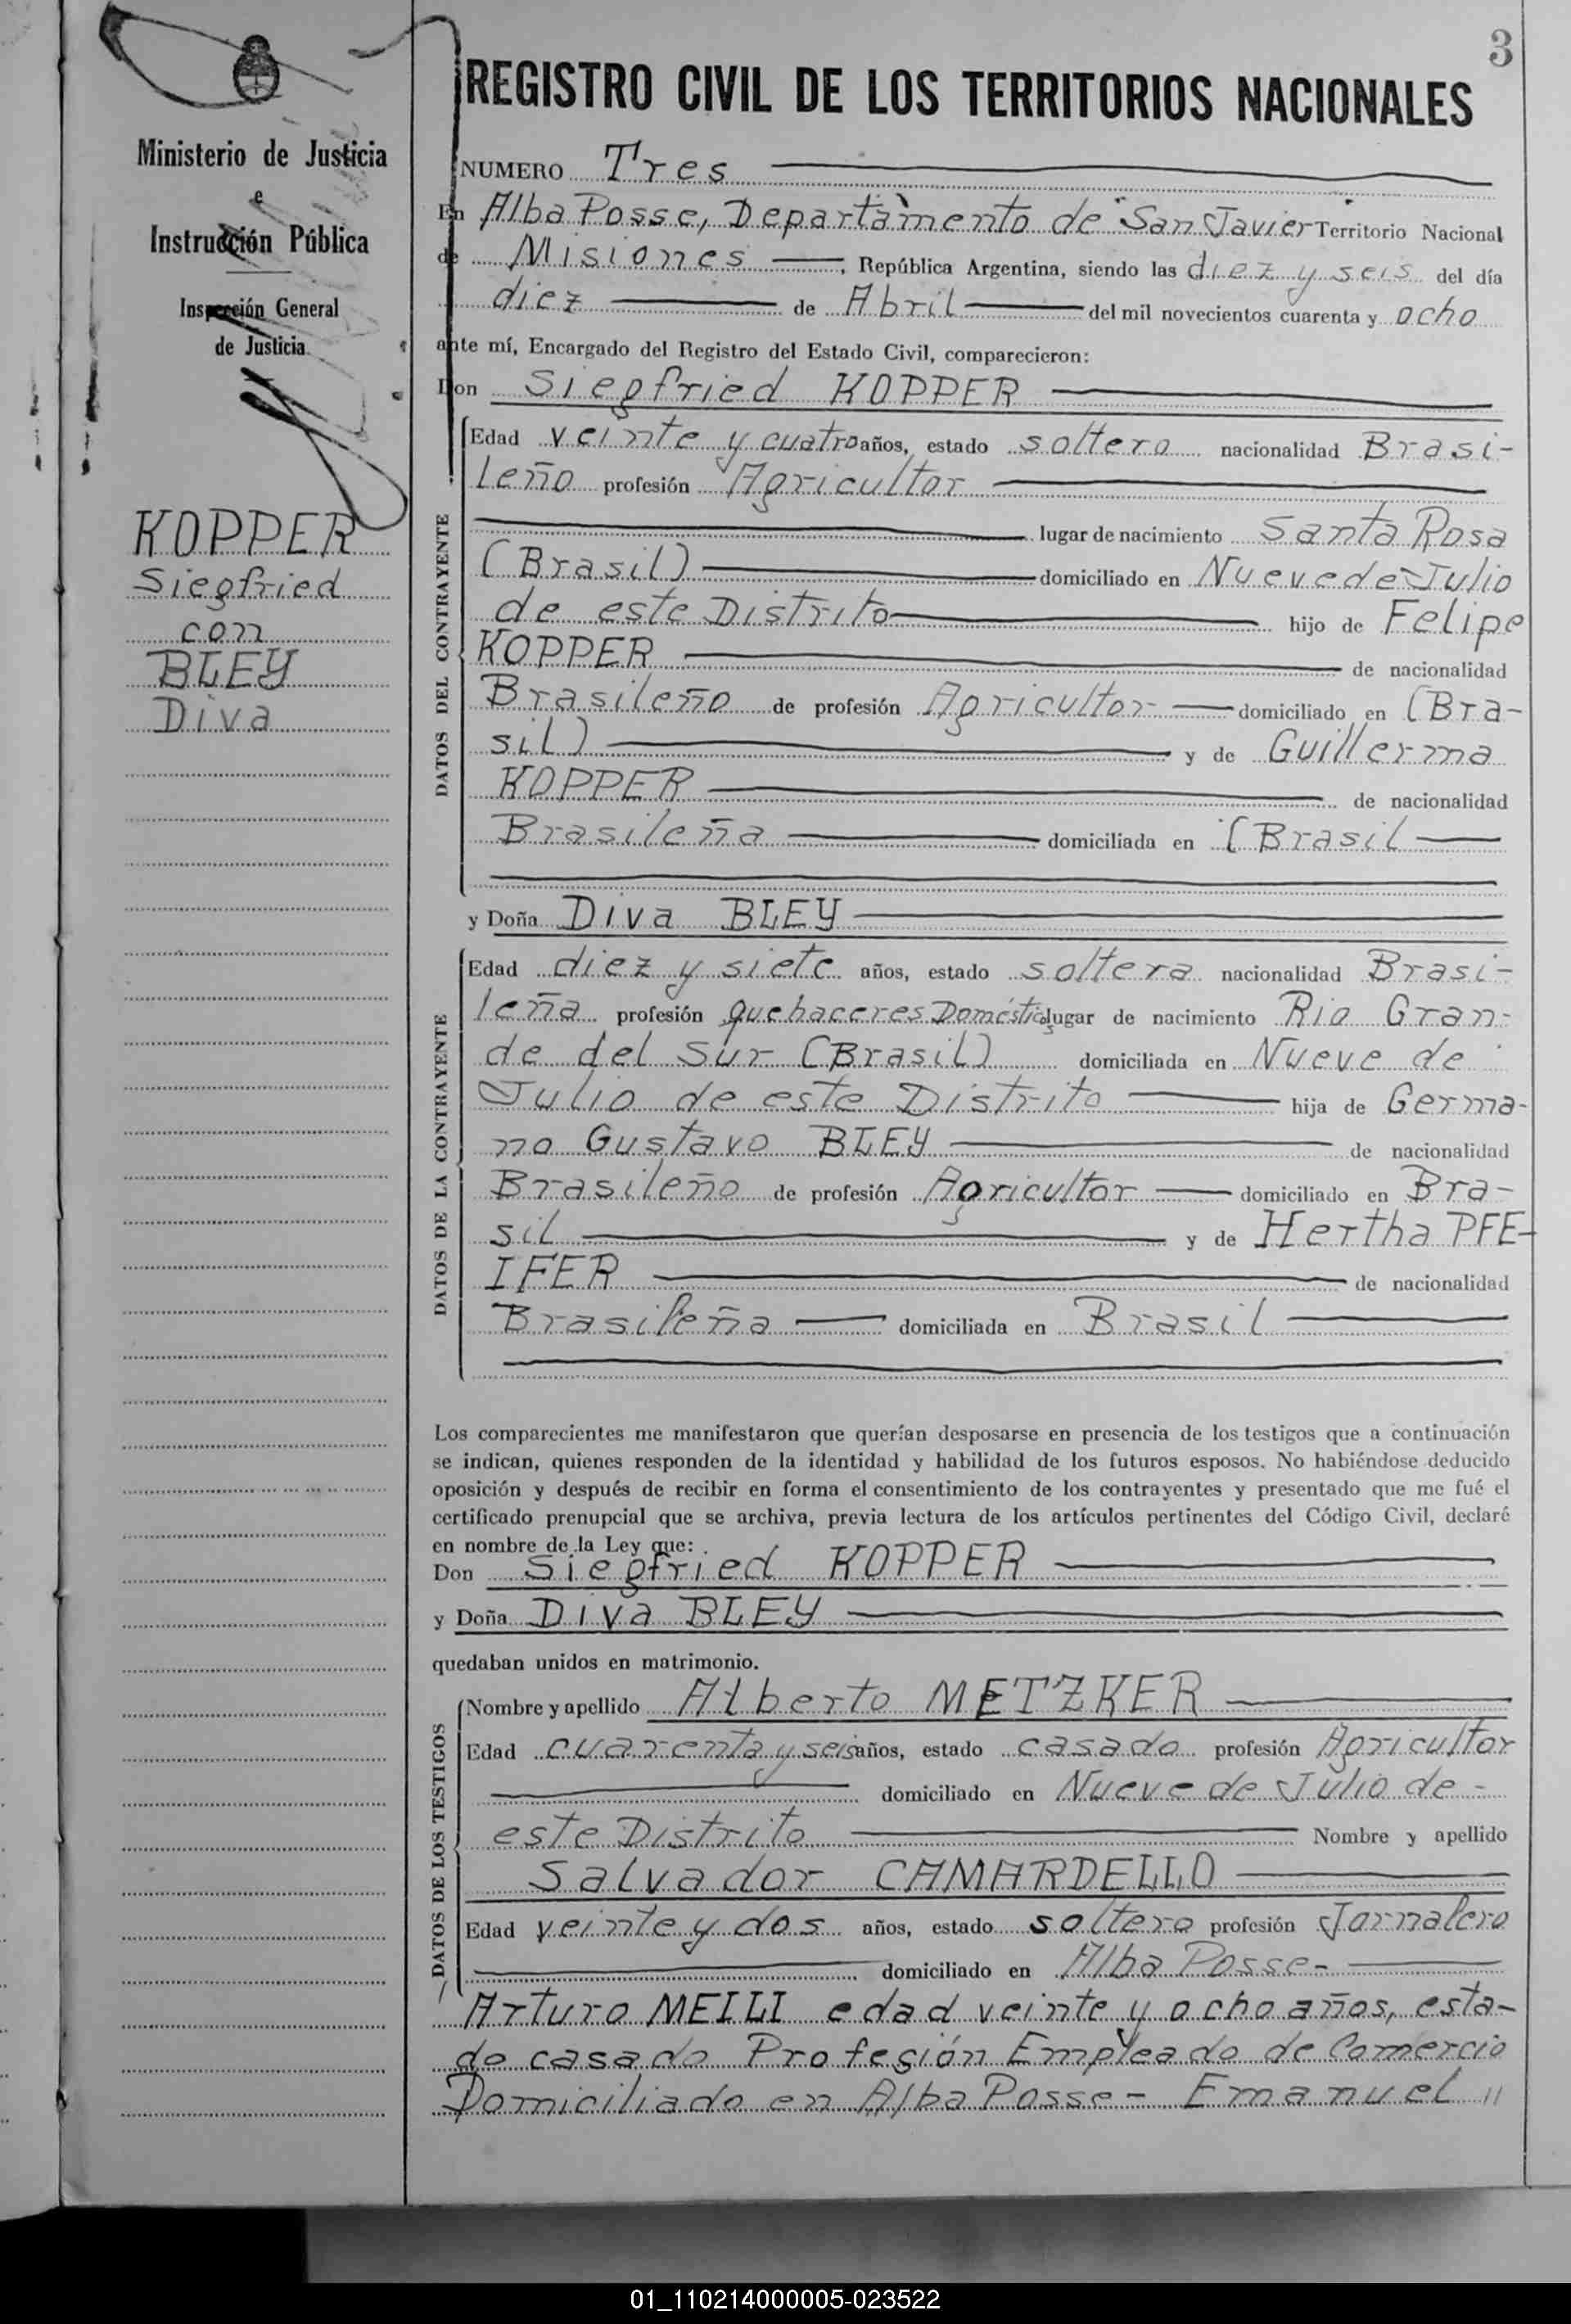 3
REGISTRO CIVIL DE LOS TERRITORIOS NACIONALES
Ministerio de Justicia
e
Instrucción Pública
Inspección General
de Justicia
KOPPER
Siegfried
con
BLEY
Diva
NUMERO Tres
En Alba Posse, Departamento de San Javier Territorio Nacional
de Misiones, República Argentina, siendo las diez y seis del día
diez de Abril del mil novecientos cuarenta y ocho
ante mí, Encargado del Registro del Estado Civil, comparecieron:
Don Siegfried KOPPER
DATOS DEL CONTRAYENTE
Edad veinte y cuatro años, estado soltero nacionalidad Brasi-
leño profesión Agricultor
lugar de nacimiento Santa Rosa
(Brasil) domiciliado en Nueve de Julio
de este Distrito hijo de Felipe
KOPPER de nacionalidad
Brasileño de profesión Agricultor domiciliado en (Bra-
sil) y de Guillerma
KOPPER de nacionalidad
Brasileña domiciliada en (Brasil
y Doña Diva BLEY
DATOS DE LA CONTRAYENTE
Edad diez y siete años, estado soltera nacionalidad Brasi-
leña profesión quehaceres Domésticos lugar de nacimiento Rio Gran-
de del Sur (Brasil) domiciliada en Nueve de
Julio de este Distrito hija de Germa-
no Gustavo BLEY de nacionalidad
Brasileño de profesión Agricultor domiciliado en Bra-
sil y de Hertha PFE-
IFER de nacionalidad
Brasileña domiciliada en Brasil
Los comparecientes me manifestaron que querían desposarse en presencia de los testigos que a continuación
se indican, quienes responden de la identidad y habilidad de los futuros esposos. No habiéndose deducido
oposición y después de recibir en forma el consentimiento de los contrayentes y presentado que me fué el
certificado prenupcial que se archiva, previa lectura de los artículos pertinentes del Código Civil, declaré
en nombre de la Ley que:
Don Siegfried KOPPER
y Doña Diva BLEY
quedaban unidos en matrimonio.
DATOS DE LOS TESTIGOS
Nombre y apellido Alberto METZKER
Edad cuarenta y seis años, estado casado profesión Agricultor
domiciliado en Nueve de Julio de -
este Distrito Nombre y apellido
Salvador CAMARDELLO
Edad veinte y dos años, estado soltero profesión Jornalero
domiciliado en Alba Posse-
Arturo MEILI edad veinte y ocho años, esta-
do casado Profesión Empleado de Comercio
Domiciliado en Alba Posse- Emanuel "
01_110214000005-023522